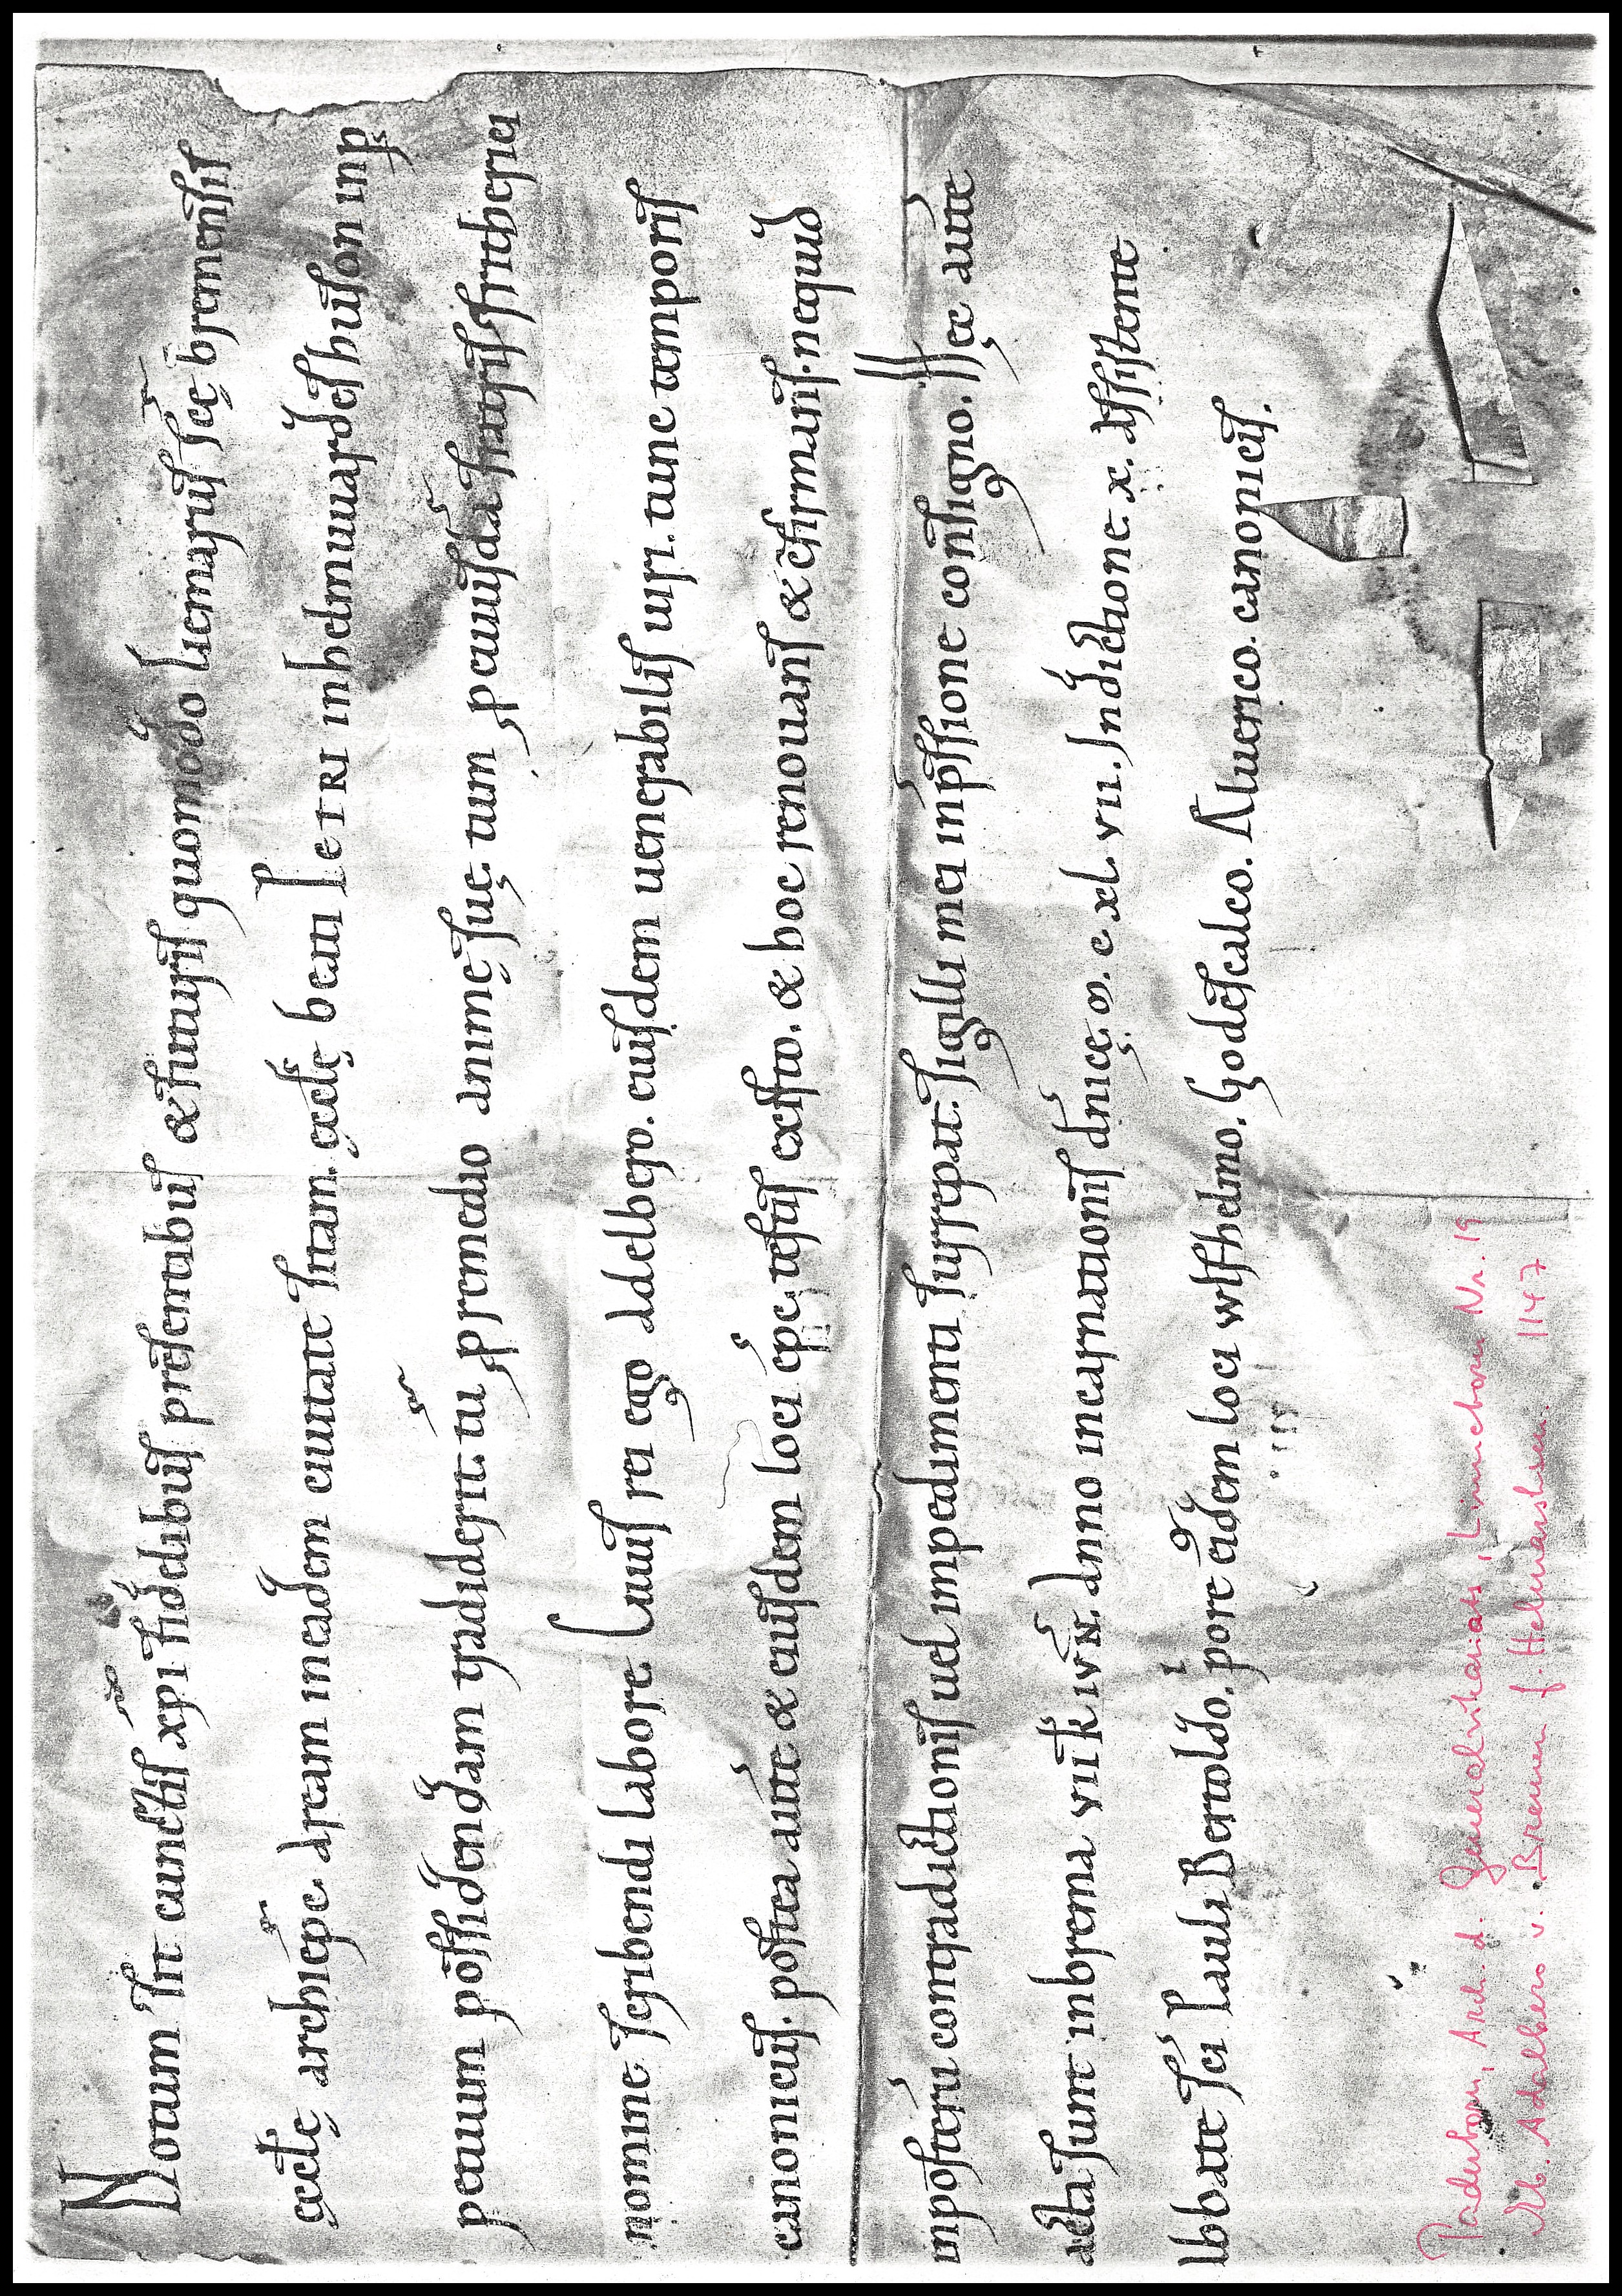 Notum sit cunctis xpi fidelibus presentibus & futuris quomodo liemarus scę bremensis
ęcclę archiepc. aream in eadem ciuitate sitam. ęcclę beati PeTRI in helmwardeshuson in p
petuum possidendam tradiderit. tū p remedio animę suę. tum petitu cuiusdā
nomine. scribendi labore. Cuius rei ego adelbero. eiusdem uenerabilis uiri. tunc temporis
canonicus. postea aute & eiusdem loci epc. testis existo. & hoc renouans & cfirmans. ne quid
in posterū contradictionis uel impedimenti surrepat. sigilli mei inpssione consigno. Hęc aute
acta sunt in brema viii k ivn. anno incarnationis dnicę. m. c. xl. vii. Indictione. x. assistente
abbate sci Pauli Bertoldo. pore eidem loci wlfhelmo. Godescalco. Aluerico. canonicis.
Paderborn, Arch. d. Generalvikariats, Limeborn Nr. 19
Eb. Adalbero v. Bremen f. Helmarshsn. 1147